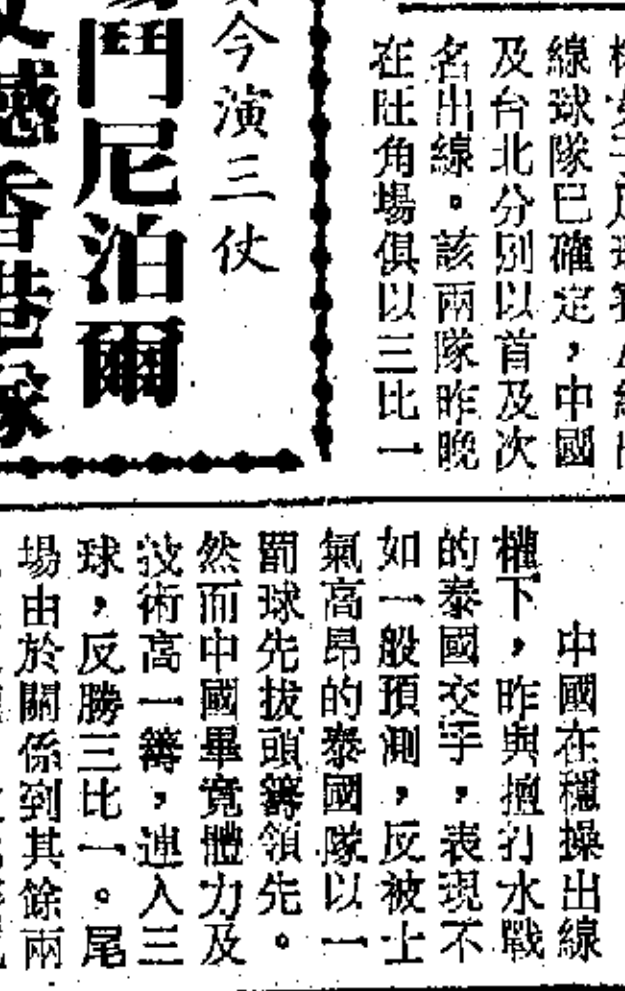 線球隊已確定，中國
及台北分別以首及次
名出線。該兩隊昨晚
在旺角場俱以三比一
今演三仗
鬥尼泊爾
感香港隊
中國在穩操出線
權下，昨與擅打水戰
的泰國交手，表現不
如一般預測，反被士
氣高昂的泰國隊以一
罰球先拔頭籌領先。
然而中國畢竟體力及
技術高一籌，連入三
球，反勝三比一。尾
場由於關係到其餘兩